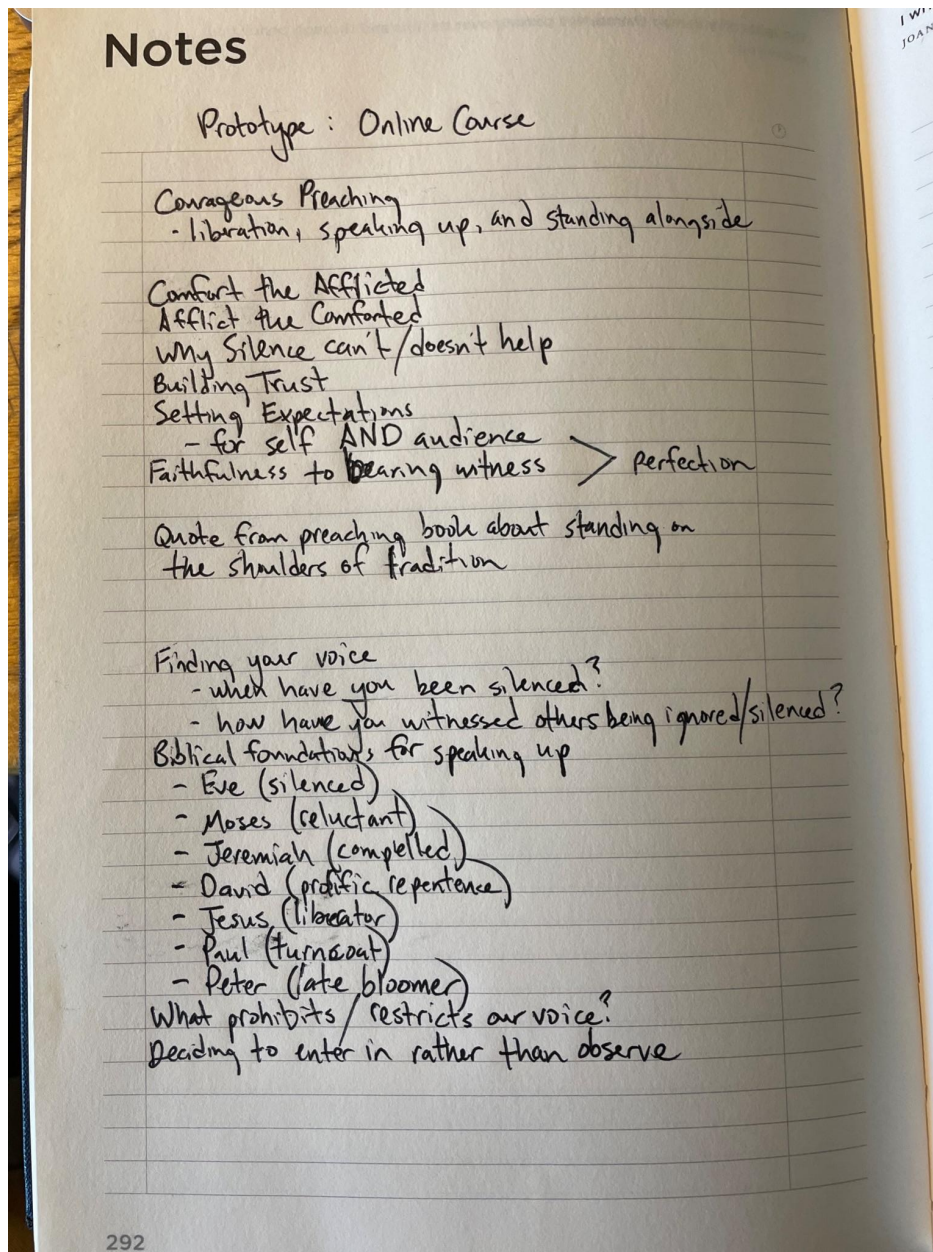 Notes
Prototype: Online Course
Courageous Preaching
- liberation, speaking up, and standing alongside
Comfort the Afflicted
Afflict the Comforted
Why Silence can't/doesn't help
Building Trust
Setting Expectations
- for self AND audience
Faithfulness to bearing witness > perfection
Quote from preaching book about standing on
the shoulders of tradition
Finding your voice
- when have you been silenced?
- how have you witnessed others being ignored/silenced?
Biblical foundations for speaking up
- Eve (silenced)
- Moses (reluctant)
- Jeremiah (compelled)
- David (prolific repentence)
- Jesus (liberator)
- Paul (turncoat)
- Peter (late bloomer)
What prohibits/restricts our voice?
Deciding to enter in rather than observe
292